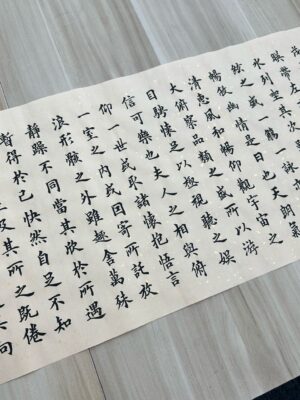 帶左
水列坐其
絃之盛一觴一
暢敘幽情是日也天朗氣
清惠風和暢仰觀宇宙之
大俯察品類之盛所以游
目騁懷足以極視聽之娛
信可樂也夫人之相與俯
仰一世或取諸懷抱悟言
一室之內或因寄所託放
浪形骸之外雖趣舍萬殊
靜躁不同當其欣於所遇
暫得於己快然自足不知
及其所之既倦
向